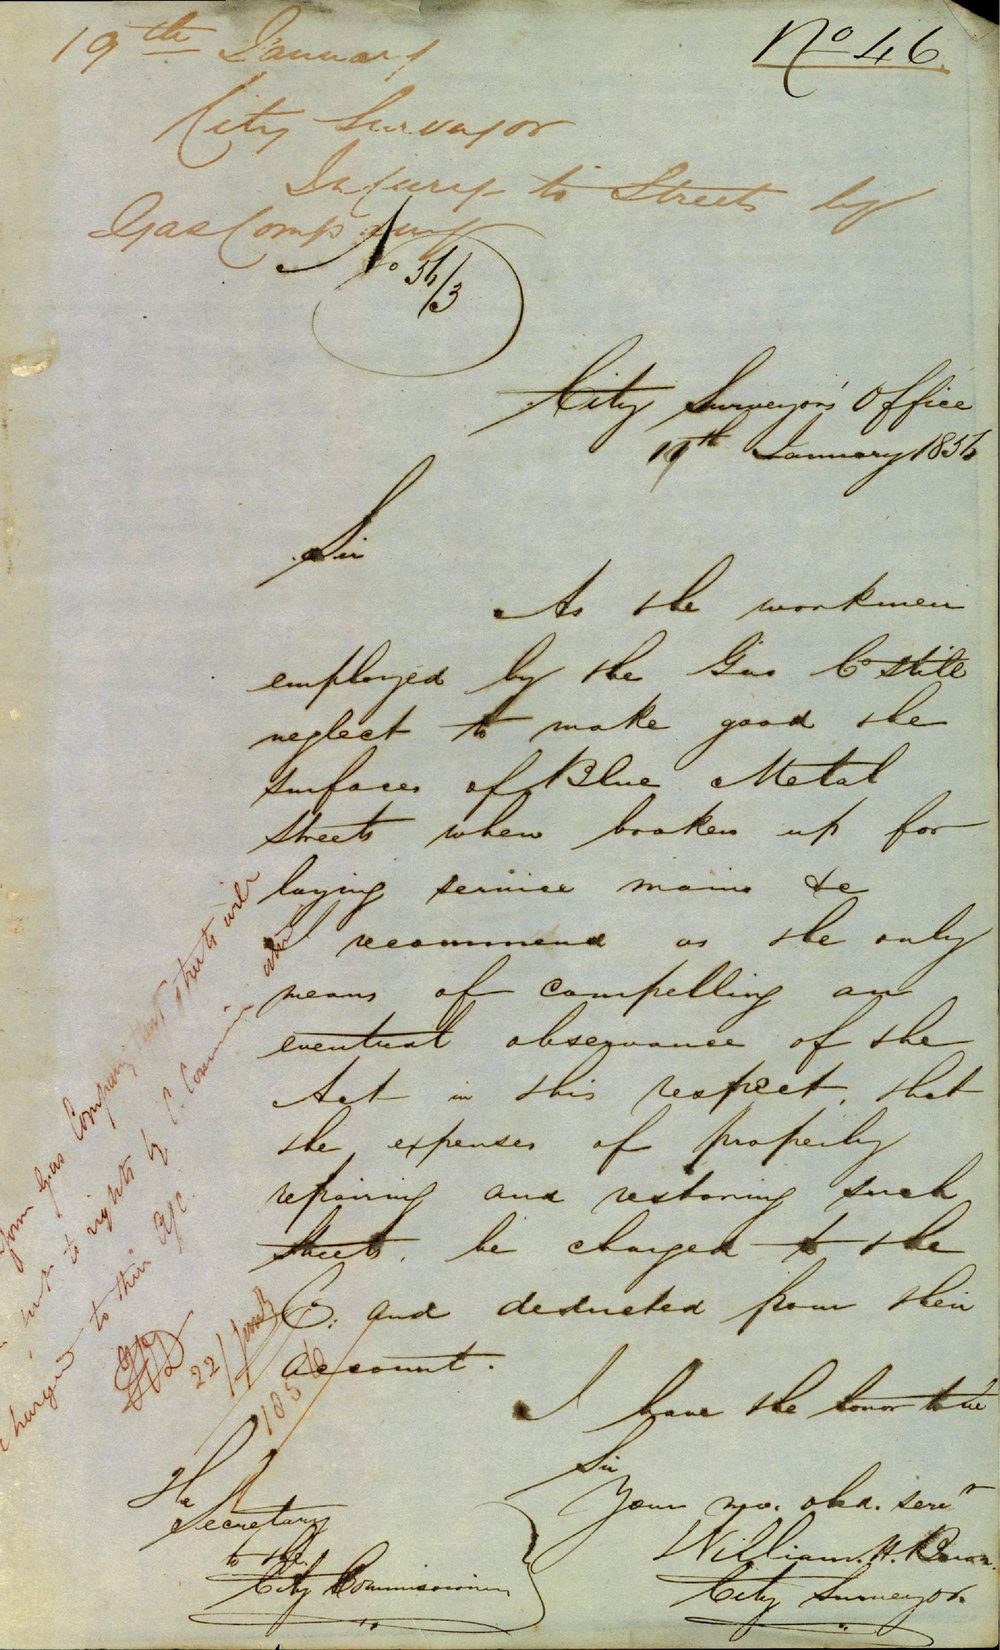 19th January
No 46
City Surveyor
Injury to Streets by
Gas Company
No 56/3
City Surveyor's Office
19th January 1856
Sir
As the workmen
employed by the Gas Co still
neglect to make good the
surfaces of Blue Metal
Streets when broken up for
laying service mains &c
I recommend as the only
means of compelling an
eventual observance of the
Act in this respect, that
the expenses of properly
repairing and restoring such
Streets, be charged to the
Co: and deducted from their
account.
I have the honor to be
Sir
Your mo. obd. servt
William. H.
City Surveyor.
The
Secretary
to the
City Commissioners
Gas Company that streets will
put to rights by C. Commis
charged to their a/c.
22/Jany
1856